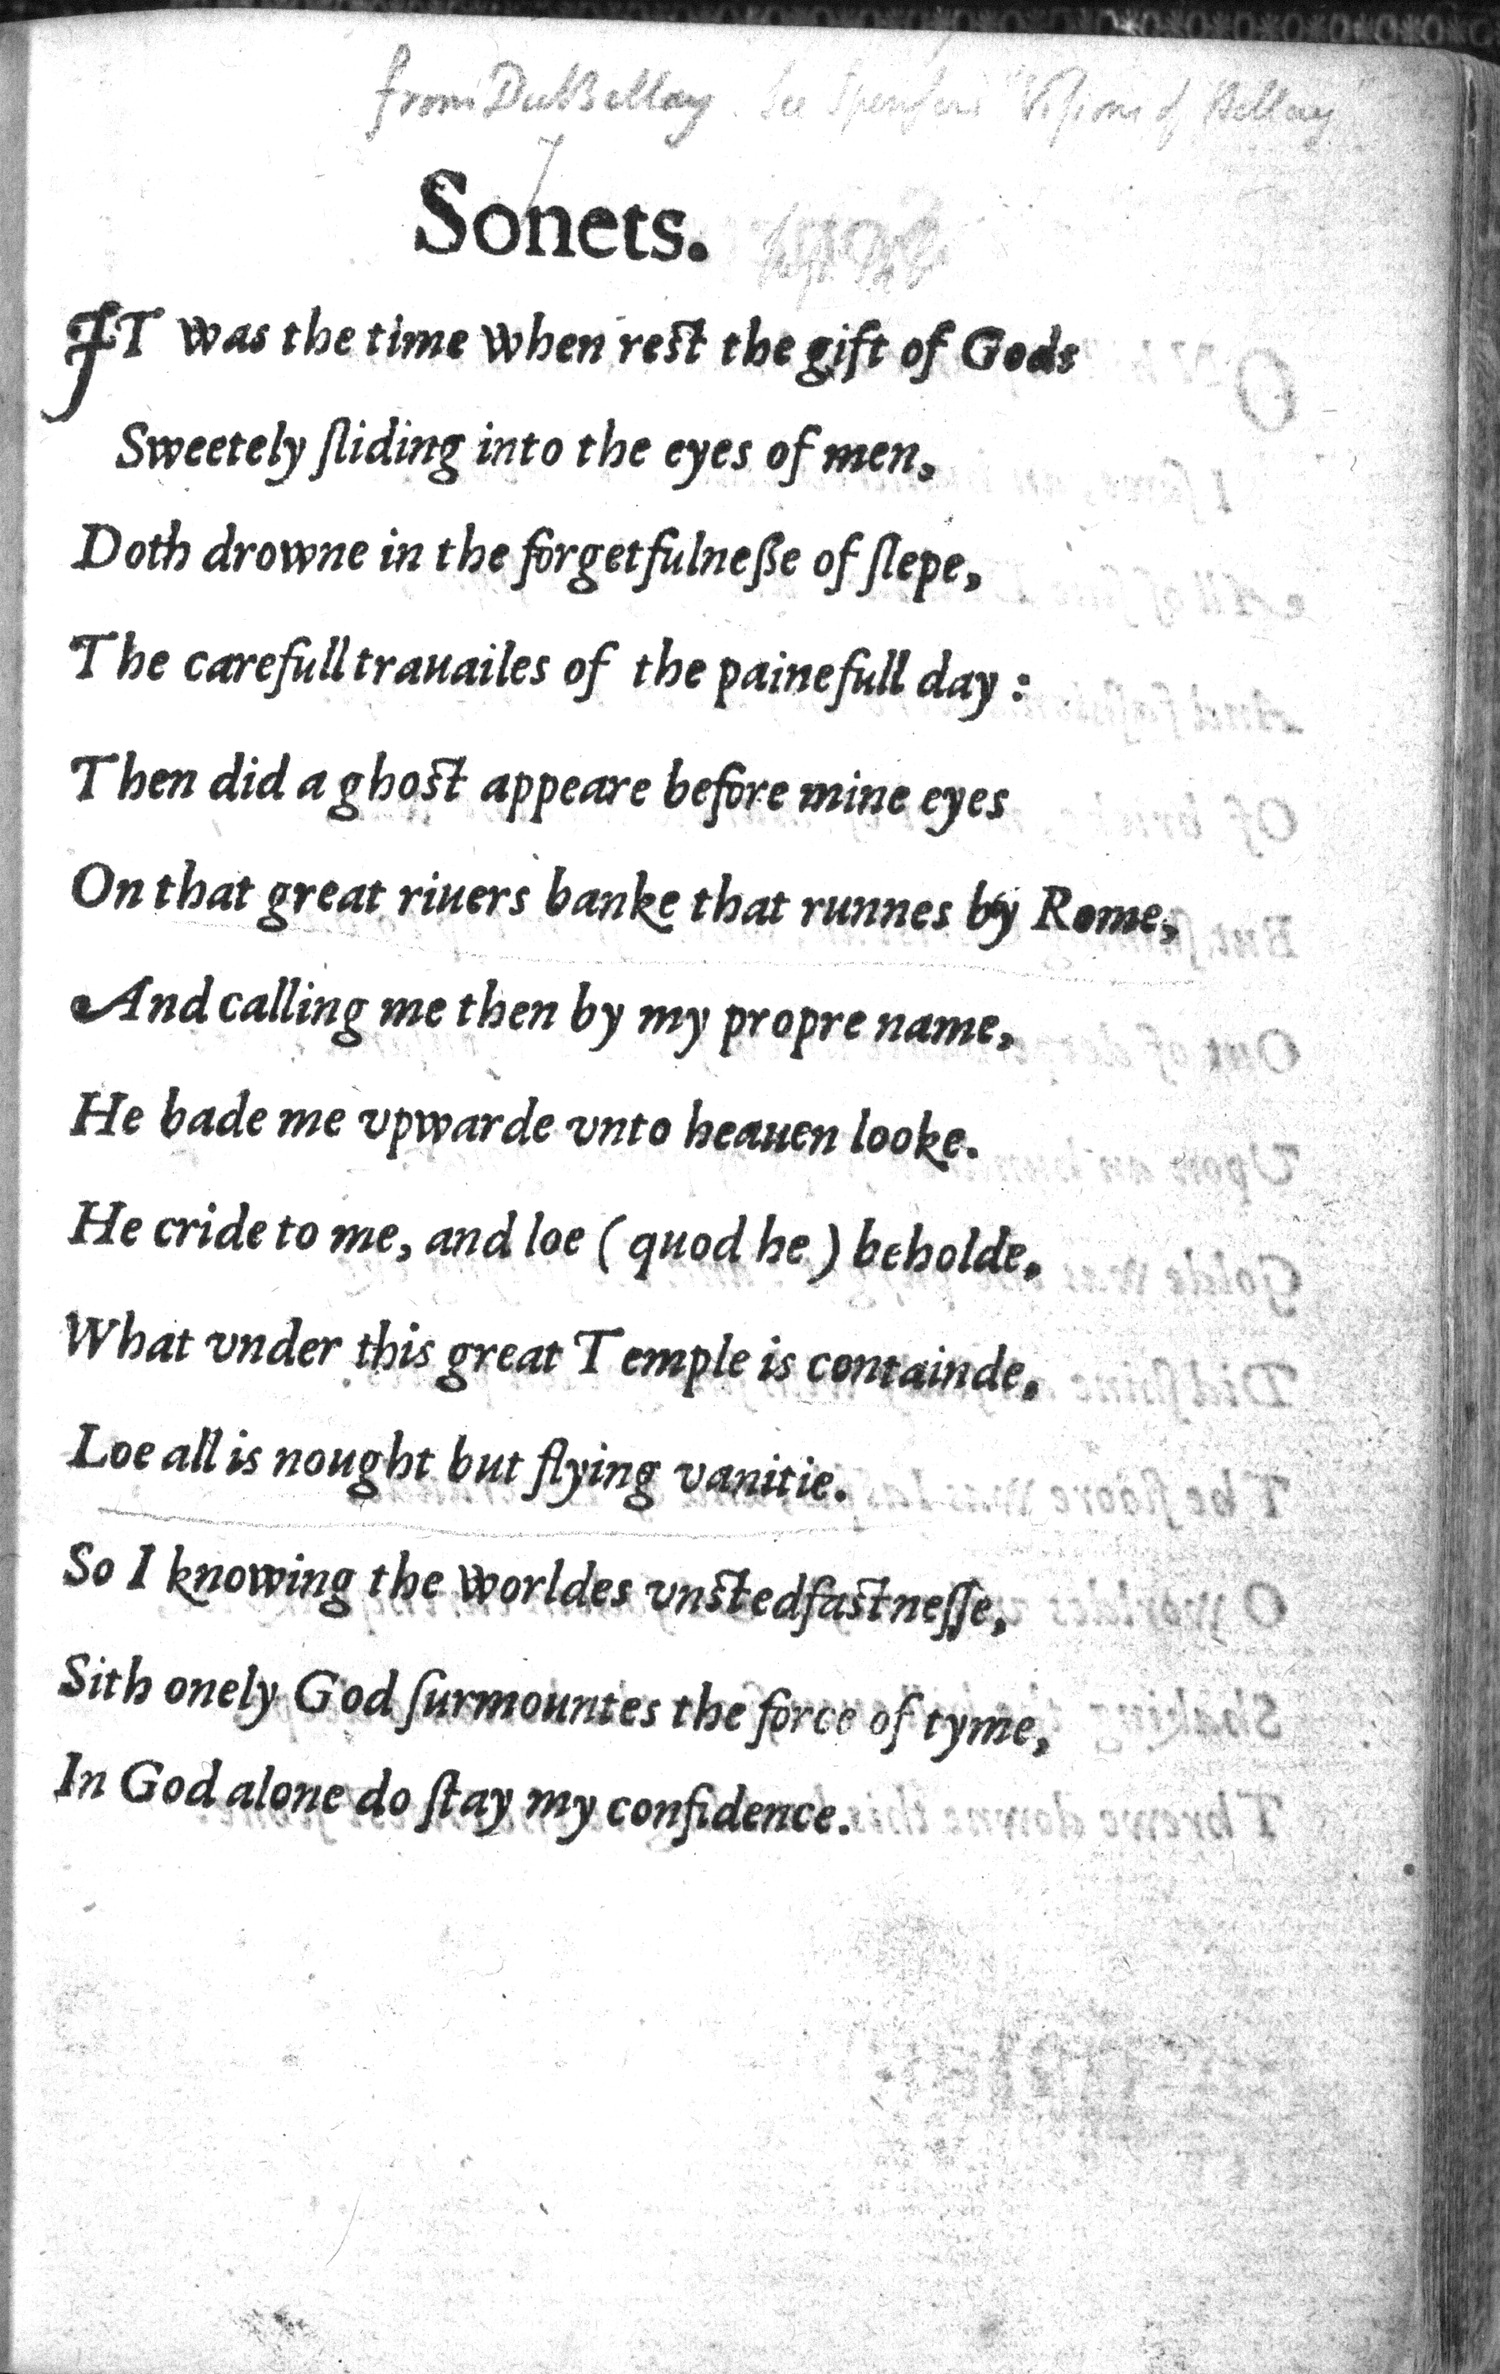 from Du Bellay. See Spensers "Visions of Bellay
Sonets.
IT was the time when rest the gift of Gods
Sweetely ſliding into the eyes of men,
Doth drowne in the forgetfulneße of ſlepe,
The carefull trauailes of the painefull day :
Then did a ghost appeare before mine eyes
On that great riuers banke that runnes by Rome,
And calling me then by my propre name,
He bade me vpwarde vnto heauen looke.
He cride to me, and loe ( quod he ) beholde,
What vnder this great Temple is containde,
Loe all is nought but flying vanitie.
So I knowing the worldes vnstedfastneſſe,
Sith onely God ſurmountes the force of tyme,
In God alone do ſtay my confidence.